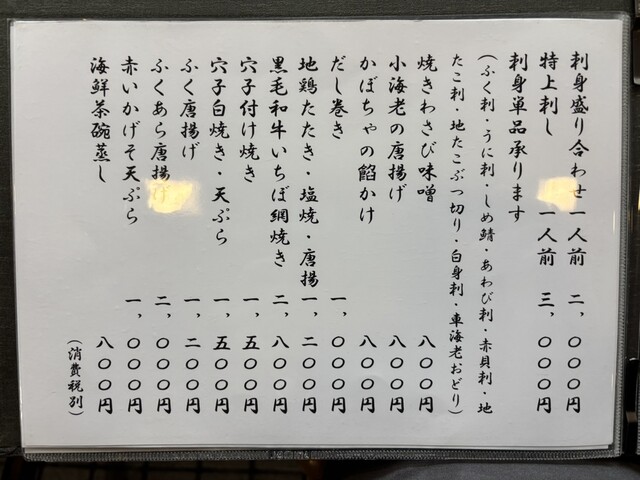 刺身盛り合わせ 一人前 二、〇〇〇円
特上刺し 一人前 三、〇〇〇円
刺身単品承ります
（ふく刺・うに刺・しめ鯖・あわび刺・赤貝刺・地
たこ刺・地たこぶつ切り・白身刺・車海老おどり）
焼きわさび味噌 八〇〇円
小海老の唐揚げ 八〇〇円
かぼちゃの餡かけ 八〇〇円
だし巻き 一、〇〇〇円
地鶏たたき・塩焼・唐揚 一、二〇〇円
黒毛和牛いちぼ網焼き 二、八〇〇円
穴子付け焼き 一、五〇〇円
穴子白焼き・天ぷら 一、五〇〇円
ふく唐揚げ 一、二〇〇円
ふくあら唐揚げ 二、〇〇〇円
赤いかげそ天ぷら 一、〇〇〇円
海鮮茶碗蒸し 八〇〇円
（消費税別）